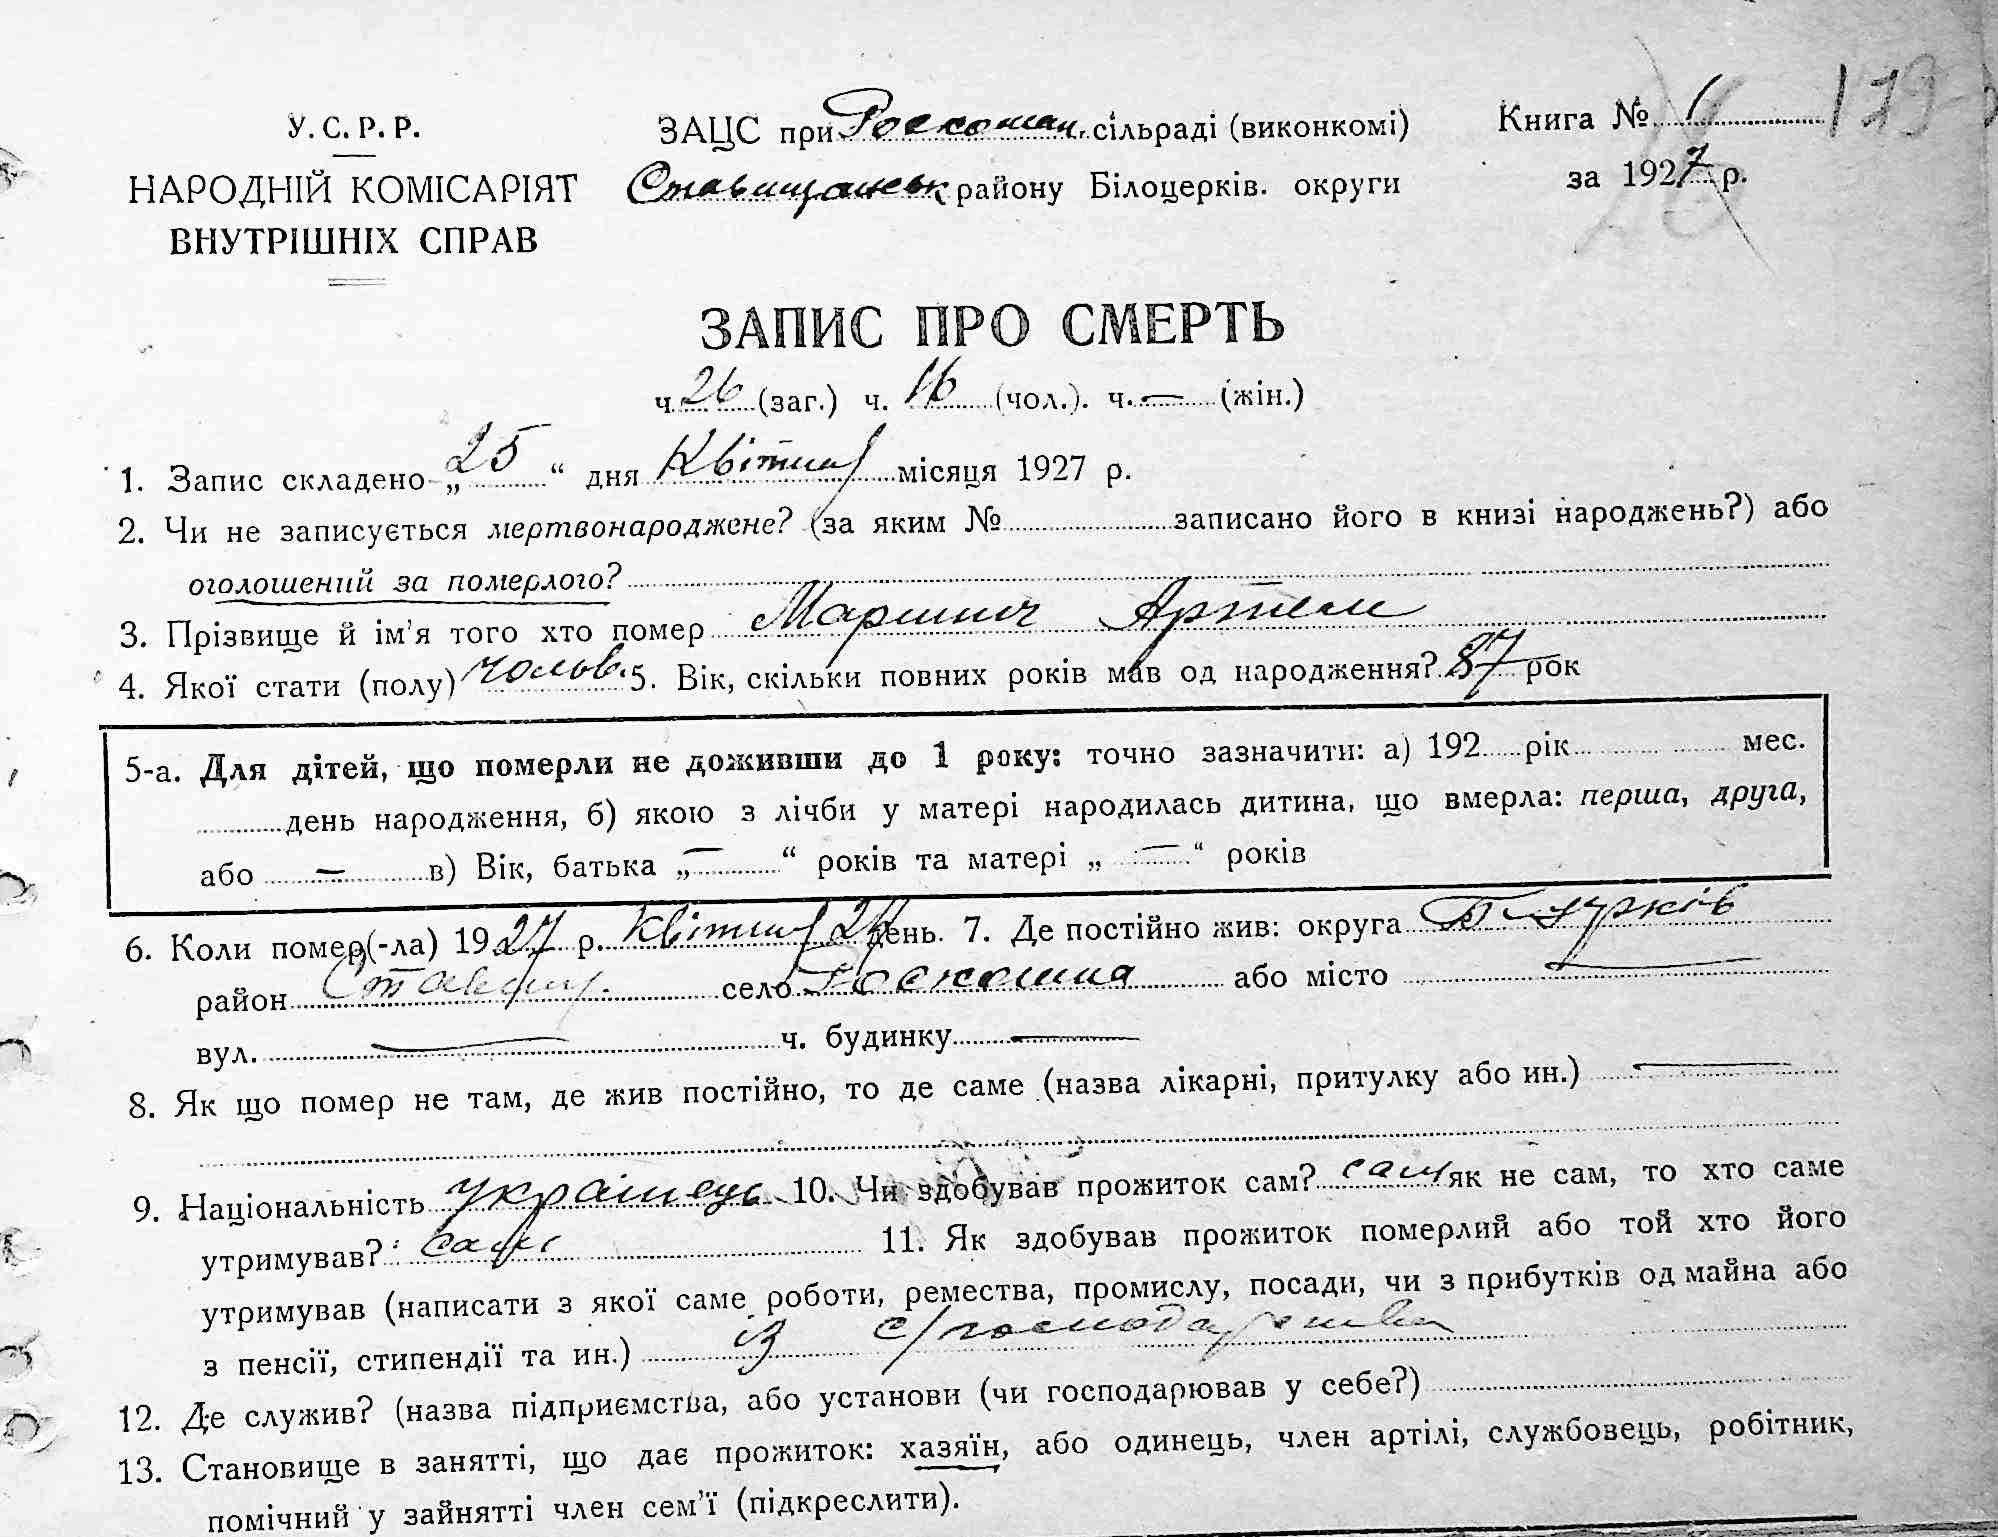 У. С. Р. Р.
НАРОДНІЙ КОМІСАРІЯТ
ВНУТРІШНІХ СПРАВ
ЗАЦС при Роскошан. сільраді (виконкомі)
Ставищанськ району Білоцерків. округи
Книга № 1
за 1927 р.
179
ЗАПИС ПРО СМЕРТЬ
ч. 26 (заг.) ч. 16 (чол.). ч. — (жін.)
1. Запис складено „25“ дня Квітня місяця 1927 р.
2. Чи не записується мертвонароджене? (за яким № записано його в книзі народжень?) або
оголошений за померлого?
3. Прізвище й ім'я того хто помер Маринич Артем
4. Якої стати (полу) чолов. 5. Вік, скільки повних років мав од народження? 87 рок
5-а. Для дітей, що померли не доживши до 1 року: точно зазначити: а) 192 рік мес.
день народження, б) якою з лічби у матері народилась дитина, що вмерла: перша, друга,
або — в) Вік, батька „—“ років та матері „—“ років
6. Коли помер(-ла) 1927 р. Квітня 24 день. 7. Де постійно жив: округа Б-цурків
район Ставищ. село Роскошна або місто —
вул. — ч. будинку —
8. Як що помер не там, де жив постійно, то де саме (назва лікарні, притулку або ин.) —
9. Національність українець 10. Чи здобував прожиток сам? сам як не сам, то хто саме
утримував? сам 11. Як здобував прожиток померлий або той хто його
утримував (написати з якої саме роботи, ремества, промислу, посади, чи з прибутків од майна або
з пенсії, стипендії та ин.) із с/господарства
12. Де служив? (назва підприємства, або установи (чи господарював у себе?)
13. Становище в занятті, що дає прожиток: хазяїн, або одинець, член артілі, службовець, робітник,
помічний у зайнятті член сем'ї (підкреслити).